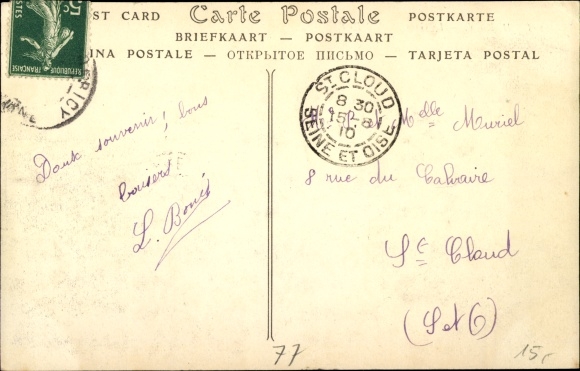 ST CARD
Carte Postale
POSTKARTE
BRIEFKAART — POSTKAART
INA POSTALE — ОТКРЫТОЕ ПИСЬМО — TARJETA POSTAL
5c
POSTES
REPUBLIQUE FRANÇAISE
ST CLOUD
8 30
15-8
10
SEINE ET OISE
Doux souvenir! bons
baisers
L. Bonis
Melle Muriel
8 rue du Calvaire
St Cloud
(S et O)
77
15